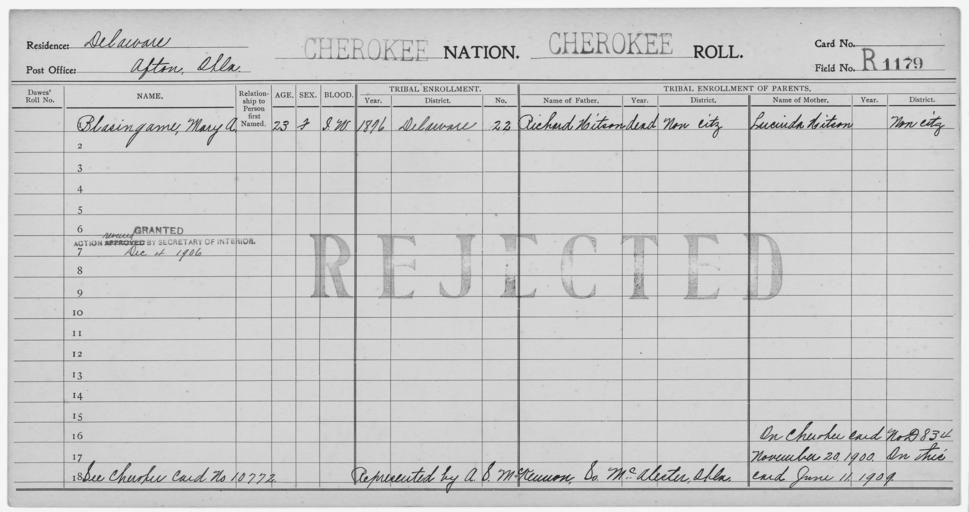 Residence: Delaware CHEROKEE NATION. CHEROKEE ROLL. Card No.
Post Office: Afton, Okla. Field No. R 1179
Dawes' Roll No. NAME. Relationship to Person first Named. AGE. SEX. BLOOD. TRIBAL ENROLLMENT. TRIBAL ENROLLMENT OF PARENTS.
Year. District. No. Name of Father. Year. District. Name of Mother. Year. District.
Blasingame, Mary A. 23 F I.W. 1896 Delaware 22 Richard Hitson dead Non citz Lucinda Hitson Non citz
2
3
4
5
6 GRANTED
ACTION APPROVED BY SECRETARY OF INTERIOR.
7 Dec 4 1906
REJECTED
8
9
10
11
12
13
14
15
16 On Cherokee card No D834
17 November 20, 1900. On this
18 See Cherokee Card No 10772 Represented by A. S. McKennon, So. McAlester, Okla. card June 11, 1909